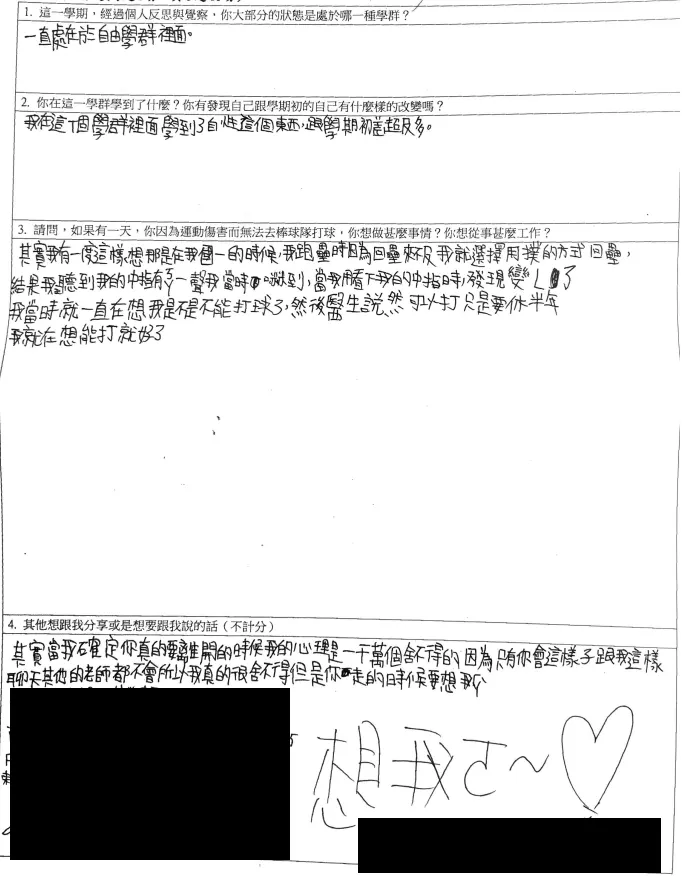 1. 這一學期，經過個人反思與覺察，你大部分的狀態是處於哪一種學群？
一直處在於自由學群裡面。
2. 你在這一學群學到了什麼？你有發現自己跟學期初的自己有什麼樣的改變嗎？
我在這個學群裡面學到了自性這個東西，跟學期初差超級多。
3. 請問，如果有一天，你因為運動傷害而無法去棒球隊打球，你想做甚麼事情？你想從事甚麼工作？
其實我有一度這樣想那是在我國一的時候，我跑壘時因為回壘來不及我就選擇用撲的方式回壘，
結果我聽到我的中指有ㄎ一聲我當時嚇到，當我用看下我的中指時，發現變L了
我當時就一直在想我是不是不能打球了，然後醫生說然可以打只是要休半年
我就在想能打就好了
4. 其他想跟我分享或是想要跟我說的話（不計分）
其實當我確定你真的要離開的時候我的心理是一千萬個舍不得的因為只有你會這樣子跟我這樣
聊天其他的老師都不會所以我真的很舍不得但是你走的時候要想我
想我ㄛ~♡